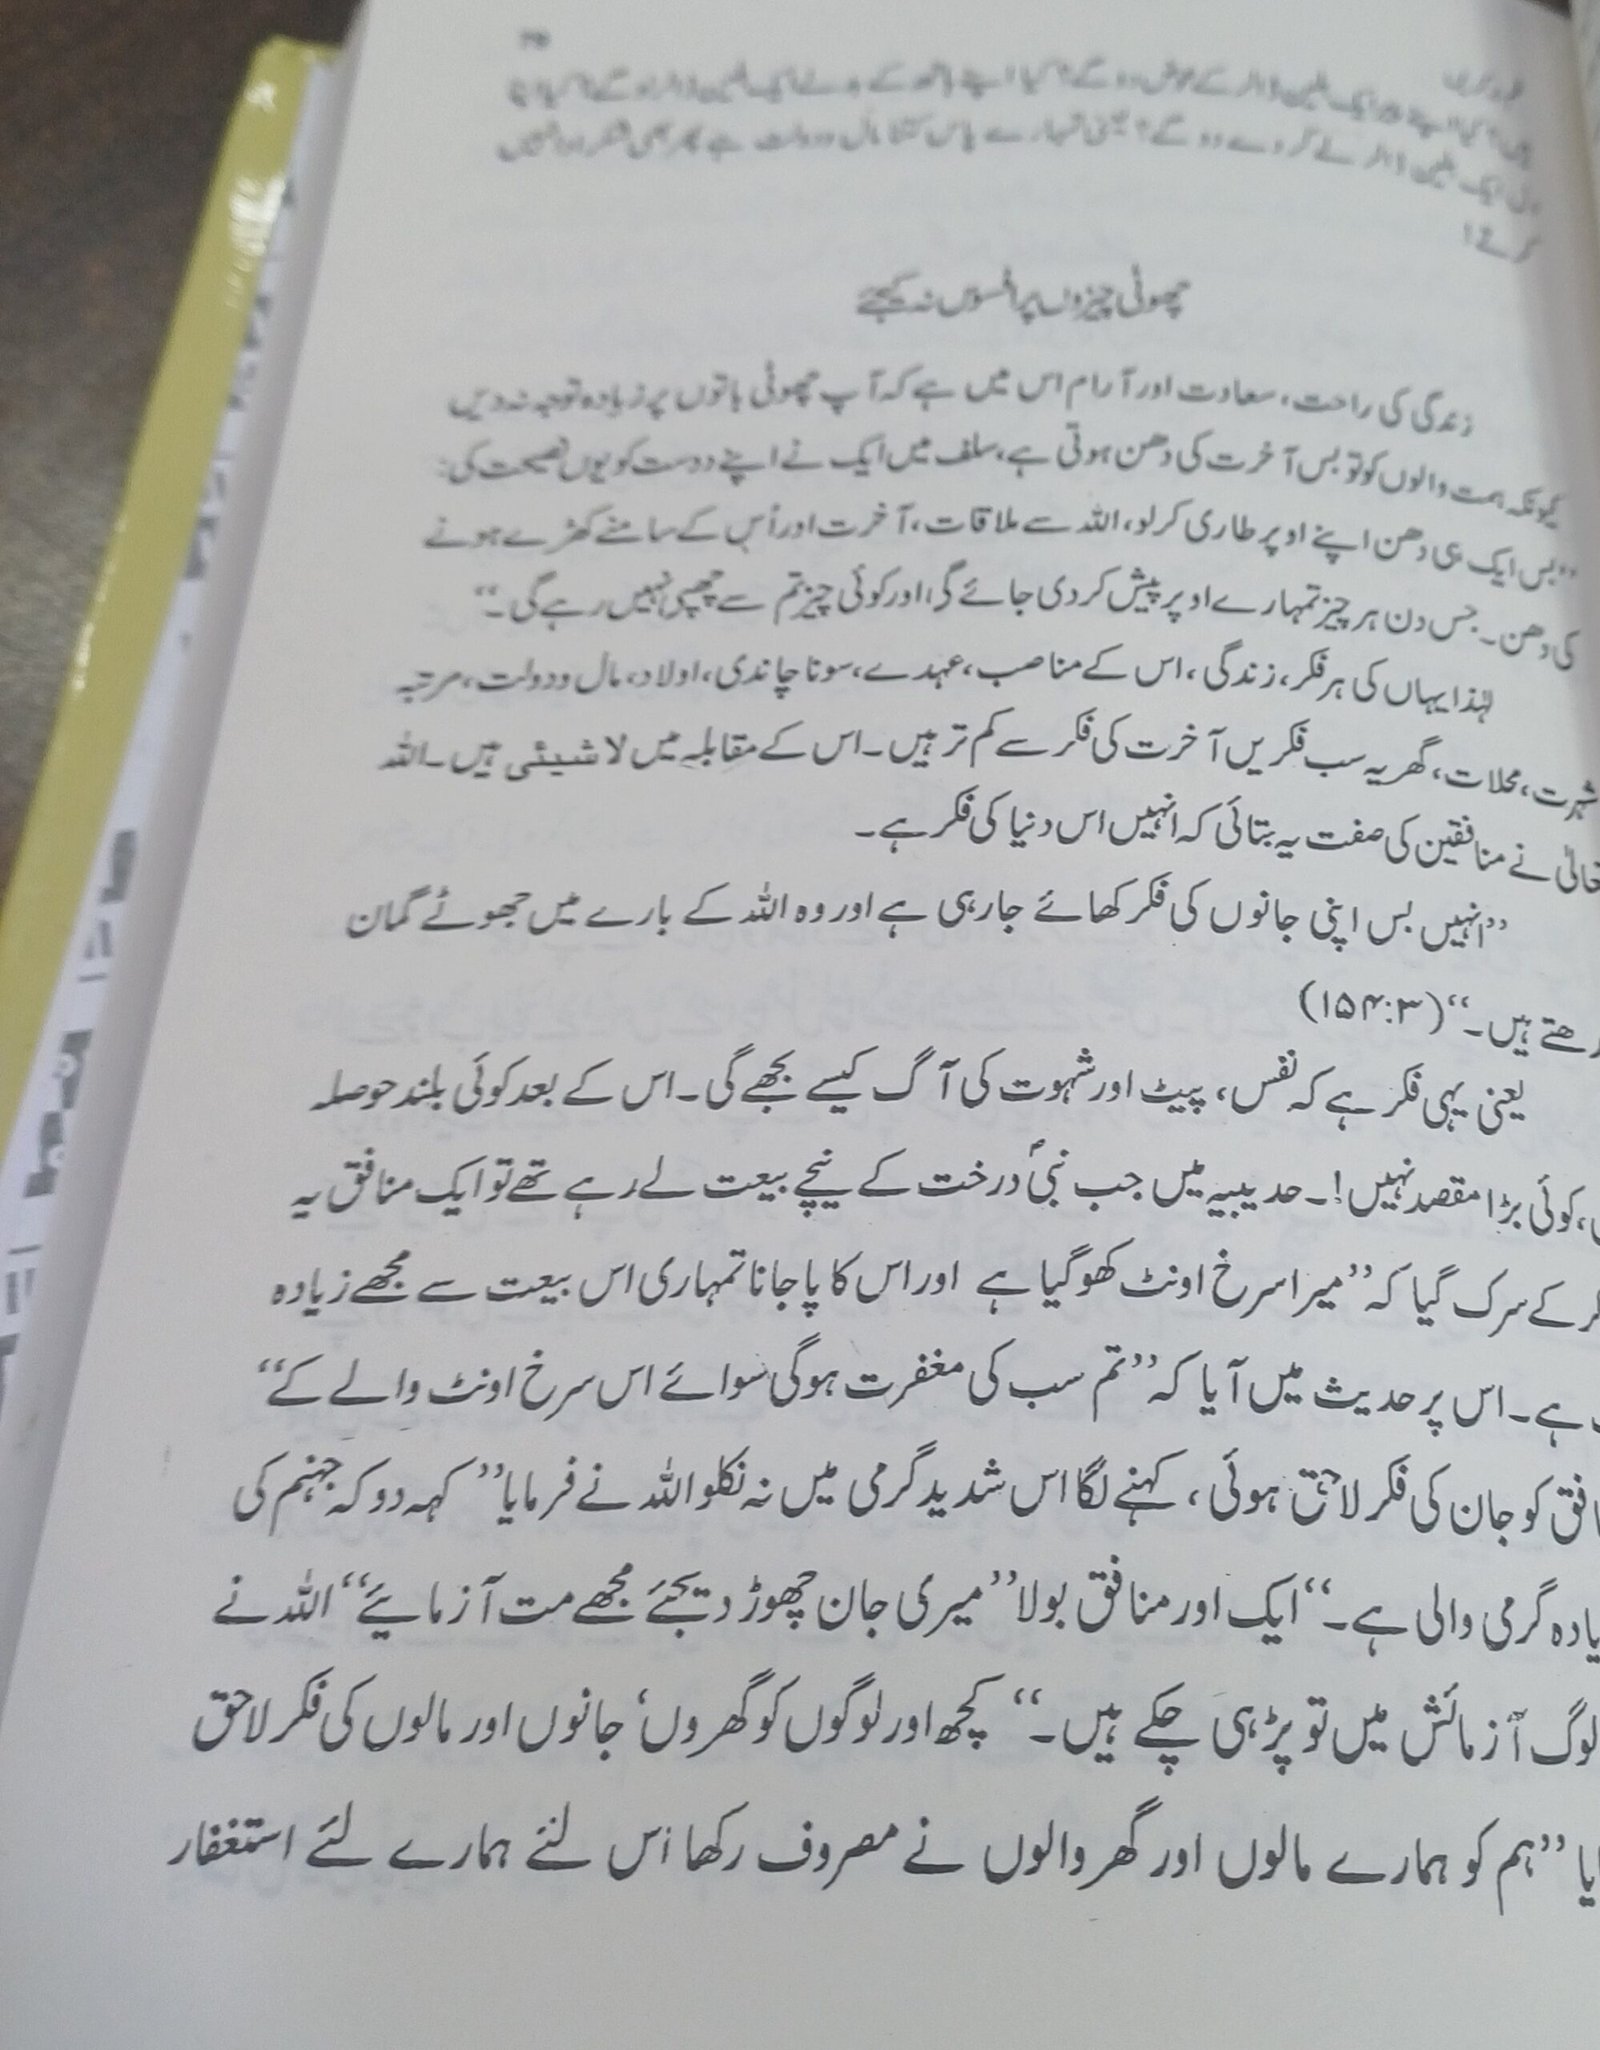 ایک ملین ڈالر کے عوض دو گے؟ کیا اپنے ہاتھ کے
ایک ملین ڈالر لے کر دے دو گے؟ یعنی تمہارے پاس کتنا مال و دولت ہے پھر بھی شکر ادا نہیں
کرتے!
چھوٹی چیزوں پر افسوس نہ کیجئے
زندگی کی راحت، سعادت اور آرام اس میں ہے کہ آپ چھوٹی باتوں پر زیادہ توجہ نہ دیں
کیونکہ ہمت والوں کو تو بس آخرت کی دھن ہوتی ہے، سلف میں ایک نے اپنے دوست کو یوں نصیحت کی:
’’بس ایک ہی دھن اپنے اوپر طاری کر لو، اللہ سے ملاقات، آخرت اور اُس کے سامنے کھڑے ہونے
کی دھن۔ جس دن ہر چیز تمہارے اوپر پیش کر دی جائے گی، اور کوئی چیز تم سے چھپی نہیں رہے گی۔‘‘
لہٰذا یہاں کی ہر فکر، زندگی، اس کے مناصب، عہدے، سونا چاندی، اولاد، مال و دولت، مرتبہ
شہرت، محلات، گھر یہ سب فکریں آخرت کی فکر سے کم تر ہیں۔ اس کے مقابلہ میں لا شیئی ہیں۔ اللہ
تعالیٰ نے منافقین کی صفت یہ بتائی کہ انہیں اس دنیا کی فکر ہے۔
’’انہیں بس اپنی جانوں کی فکر کھائے جا رہی ہے اور وہ اللہ کے بارے میں جھوٹے گمان
رکھتے ہیں۔‘‘ (۳:۱۵۴)
یعنی یہی فکر ہے کہ نفس، پیٹ اور شہوت کی آگ کیسے بجھے گی۔ اس کے بعد کوئی بلند حوصلہ
، کوئی بڑا مقصد نہیں!۔ حدیبیہ میں جب نبیؐ درخت کے نیچے بیعت لے رہے تھے تو ایک منافق یہ
کر کے سرک گیا کہ ’’میرا سرخ اونٹ کھو گیا ہے اور اس کا پا جانا تمہاری اس بیعت سے مجھے زیادہ
ہے۔ اس پر حدیث میں آیا کہ ’’تم سب کی مغفرت ہوگی سوائے اس سرخ اونٹ والے کے‘‘
کو جان کی فکر لاحق ہوئی، کہنے لگا اس شدید گرمی میں نہ نکلو اللہ نے فرمایا ’’کہہ دو کہ جہنم کی
زیادہ گرمی والی ہے۔‘‘ ایک اور منافق بولا ’’میری جان چھوڑ دیجئے مجھے مت آزمایئے‘‘ اللہ نے
لوگ آزمائش میں تو پڑ ہی چکے ہیں۔‘‘ کچھ اور لوگوں کو گھروں، جانوں اور مالوں کی فکر لاحق
’’ہم کو ہمارے مالوں اور گھر والوں نے مصروف رکھا اس لئے ہمارے لئے استغفار